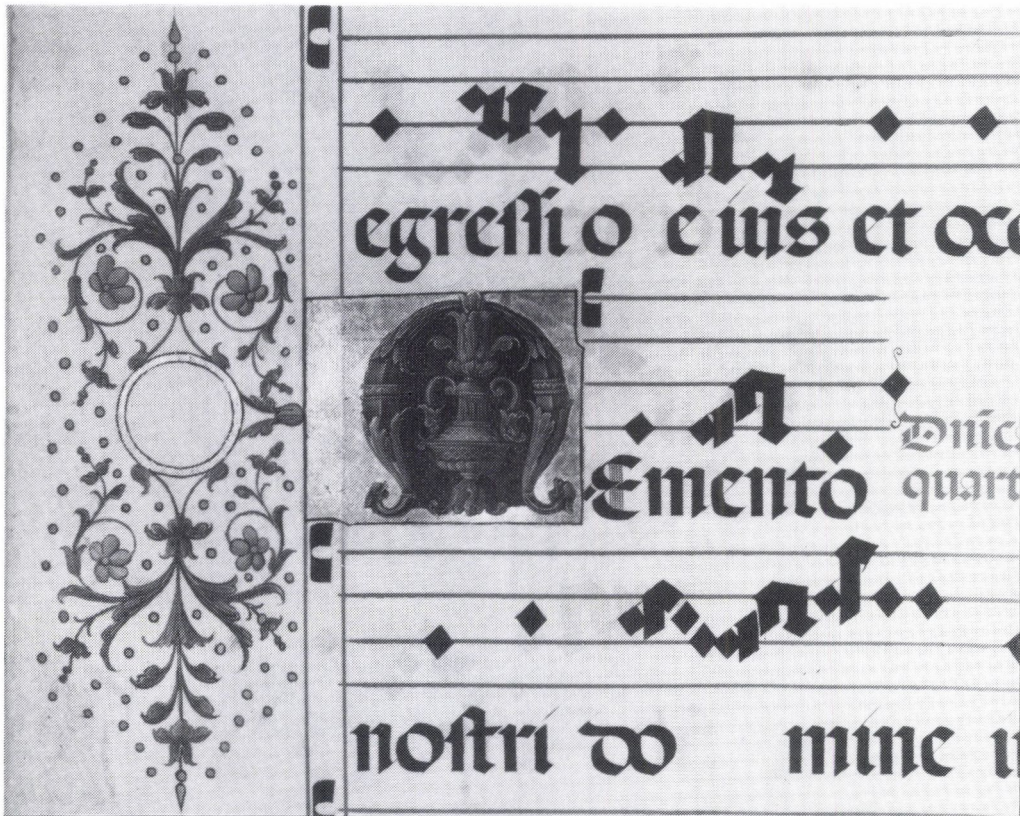 egressio eius et occ
MEmento Dnic
quart
nostri do mine in